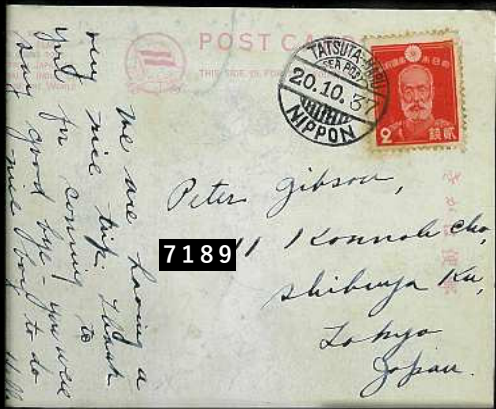 POST CARD
TATSUTA-MARU
SEA POST
20.10.37
NIPPON
2
We are having a
very nice trip. Thank
you for coming to
say good bye - you were
nice boy to do
Peter Gibson,
11 Konnoh Cho,
Shibuya Ku,
Tokyo
Japan.
7189